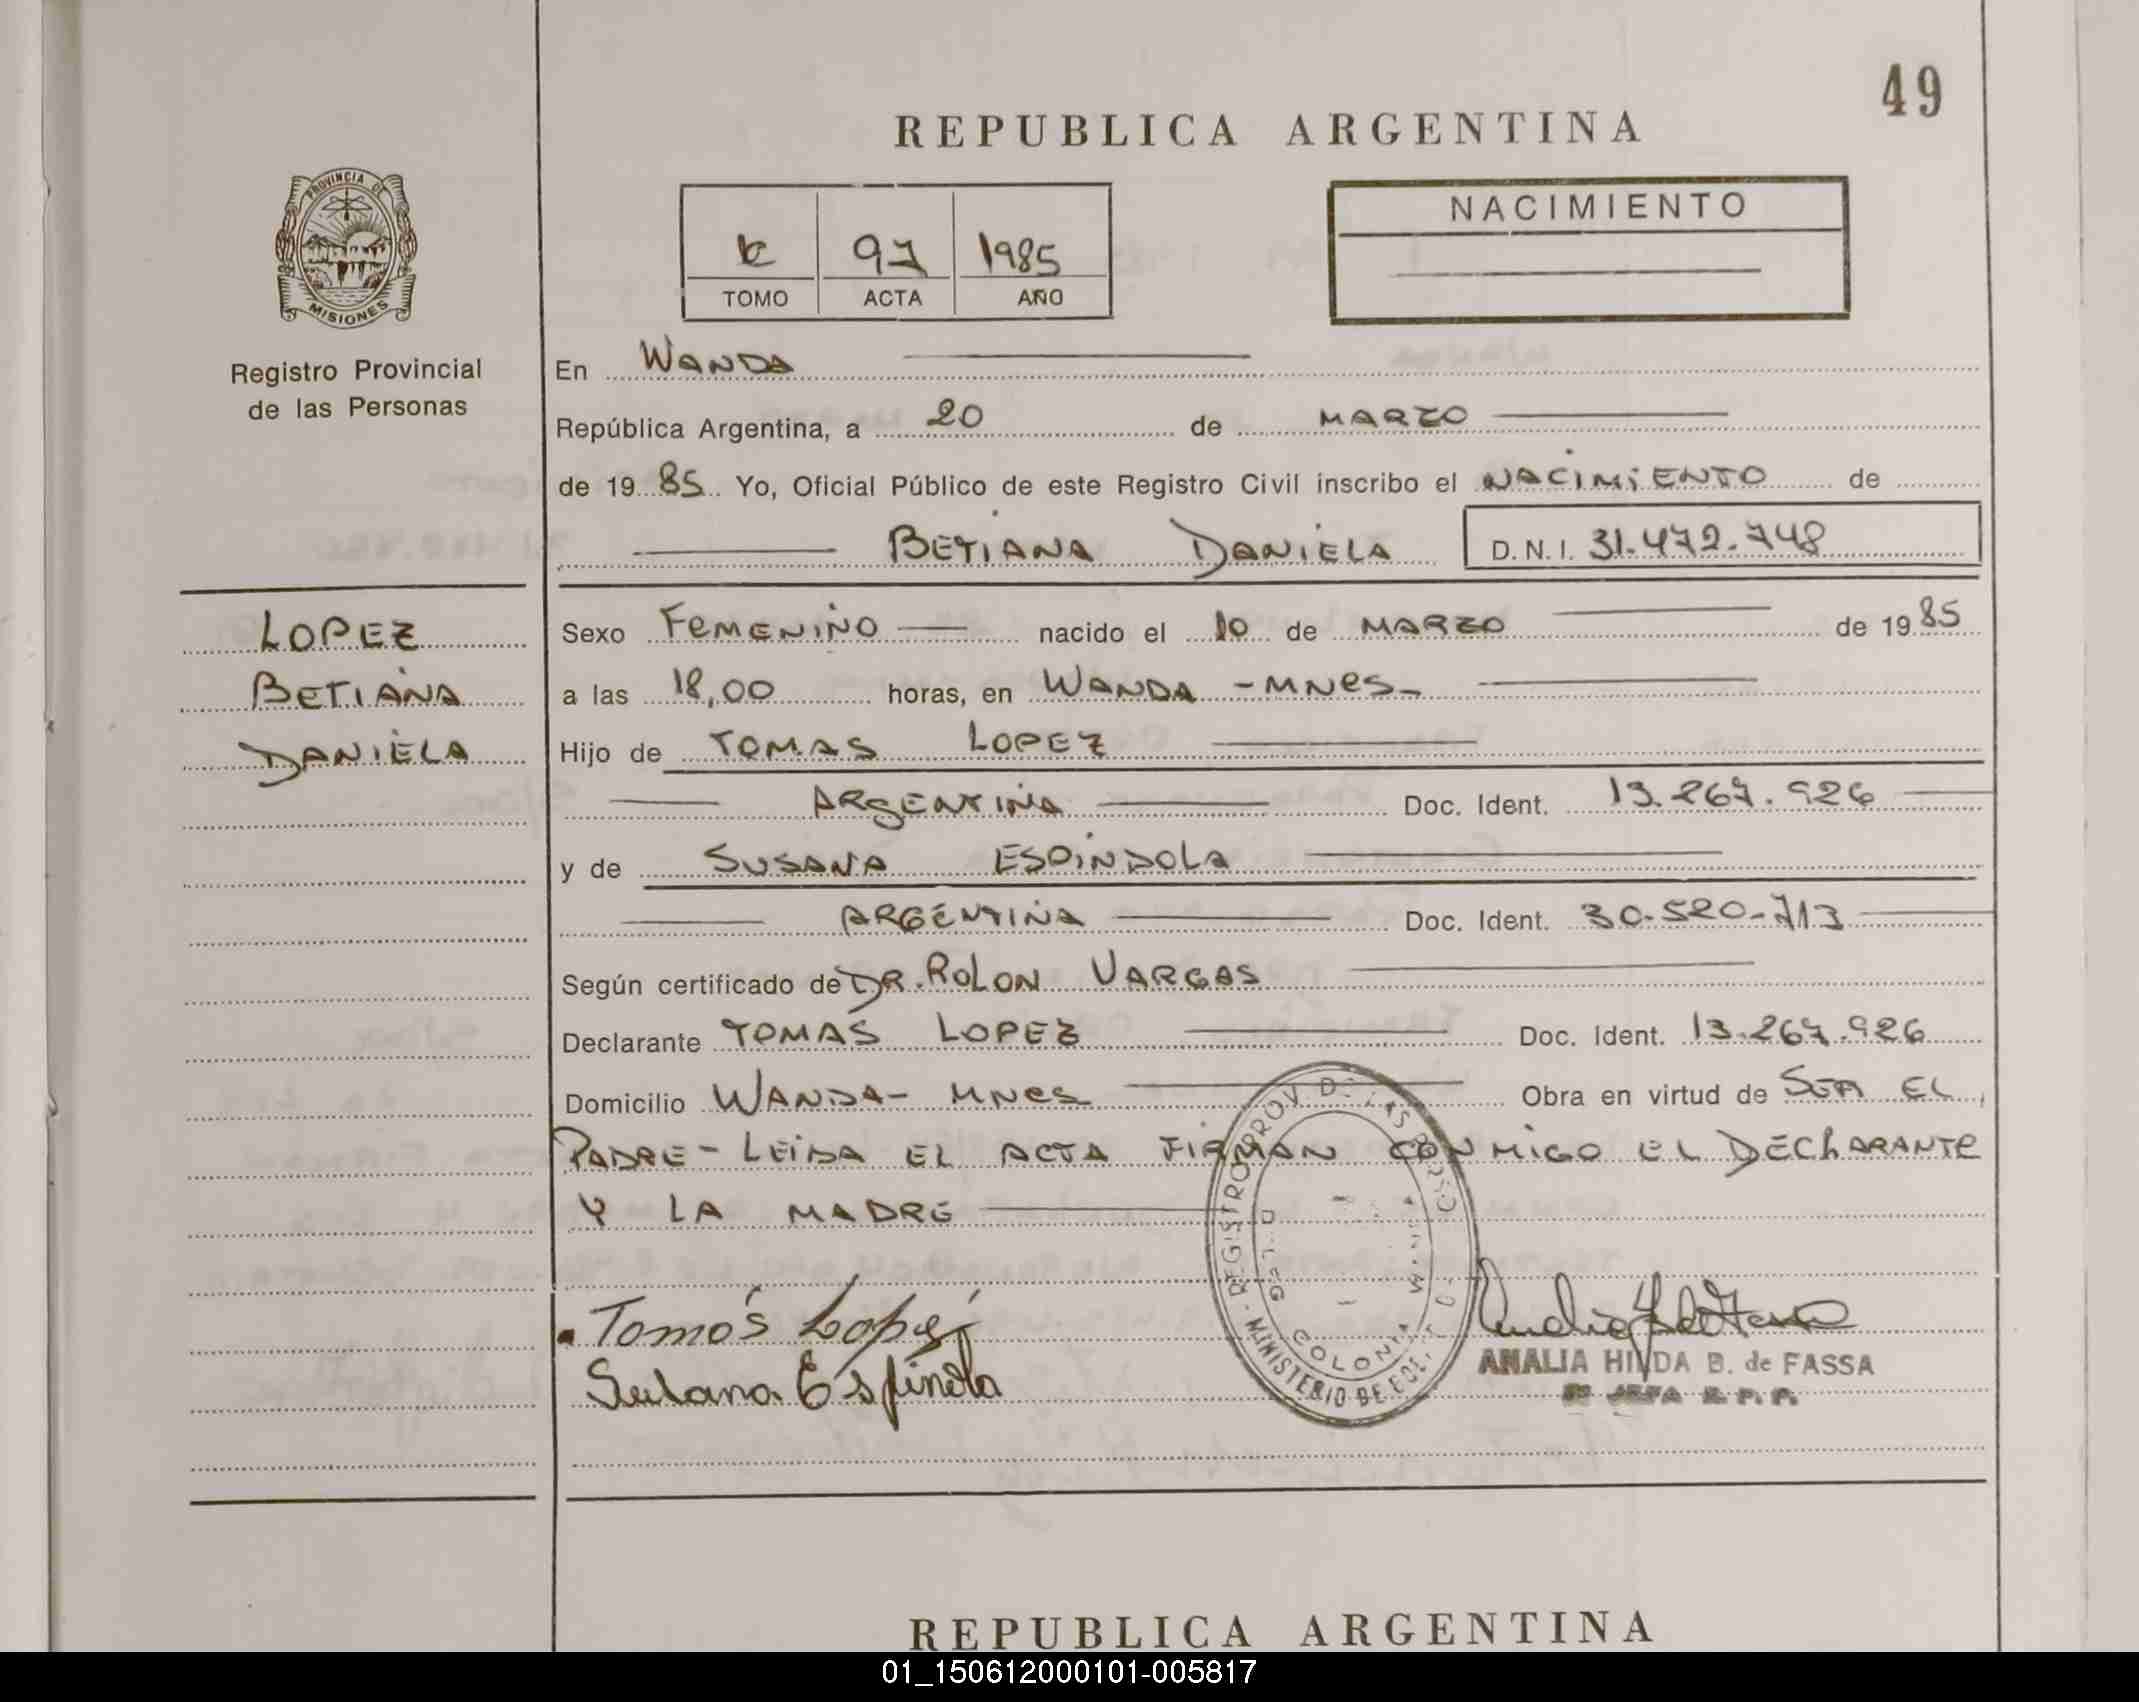 49
REPUBLICA ARGENTINA
PROVINCIA DE
MISIONES
Registro Provincial
de las Personas
97 1985
TOMO ACTA AÑO
NACIMIENTO
En WANDA
República Argentina, a 20 de MARZO
de 1985 Yo, Oficial Público de este Registro Civil inscribo el NACIMIENTO de
BETIANA DANIELA D.N.I. 31.472.748
LOPEZ
BETIANA
DANIELA
Sexo FEMENINO nacido el 10 de MARZO de 1985
a las 18,00 horas, en WANDA - MNES-
Hijo de TOMAS LOPEZ
ARGENTINA Doc. Ident. 13.267.926
y de SUSANA ESPINDOLA
ARGENTINA Doc. Ident. 30.520.713
Según certificado de DR. ROLON VARGAS
Declarante TOMAS LOPEZ Doc. Ident. 13.267.926
Domicilio WANDA - MNES Obra en virtud de SER EL
PADRE - LEIDA EL ACTA FIRMAN CONMIGO EL DECLARANTE
Y LA MADRE
Tomás López
Susana Espindola
COLONIA
ANALIA HILDA B. de FASSA
JEFA R. P. P.
REPUBLICA ARGENTINA
01_150612000101-005817